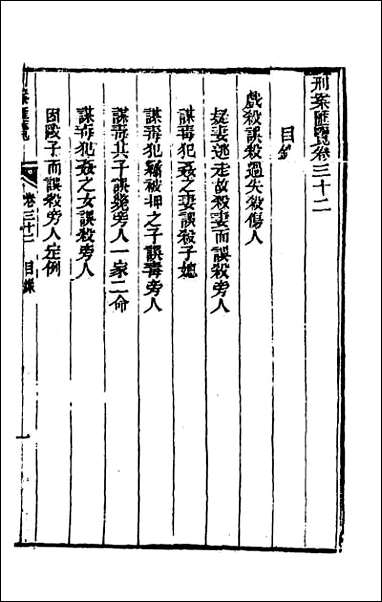 刑案匯覽卷三十二
目錄
戲殺誤殺過失殺傷人
疑妻逃走故殺妻而誤殺旁人
謀毒犯姦之妻誤殺子媳
謀毒犯竊被押之子誤毒旁人
謀毒其子誤斃旁人一家二命
謀毒犯姦之女誤殺旁人
因毆子而誤殺旁人定例
卷三十二 目錄
一